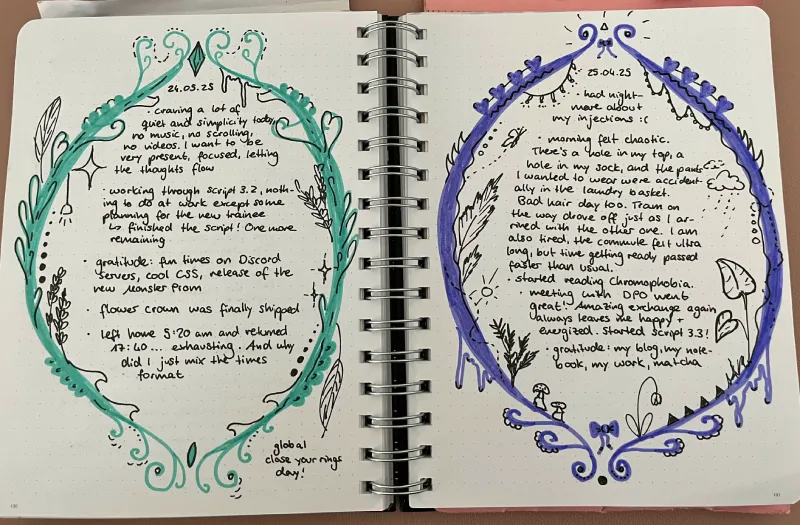 24.05.25
· craving a lot of
quiet and simplicity today,
no music, no scrolling,
no videos. I want to be
very present, focused, letting
the thoughts flow
· working through script 3.2, noth-
ing to do at work except some
planning for the new trainee
↳ finished the script! One more
remaining
· gratitude: fun times on Discord
servers, cool CSS, release of the
new Monster Prom
· flower crown was finally shipped
· left home 5:20 am and returned
17:40... exhausting. And why
did I just mix the times
format
global
close your rings
day!
130
25.04.25
· had night-
mare about
my injections :(
· morning felt chaotic.
There's a hole in my top, a
hole in my sock, and the pants
I wanted to wear were accident-
ally in the laundry basket.
Bad hair day too. Tram on
the way drove off just as I ar-
rived with the other one. I am
also tired, the commute felt ultra
long, but time getting ready passed
faster than usual.
· started reading Chromophobia.
· meeting with DPO went
great! Amazing exchange again
always leaves me happy +
energized. Started script 3.3!
· gratitude: my blog, my note-
book, my work, matcha
131